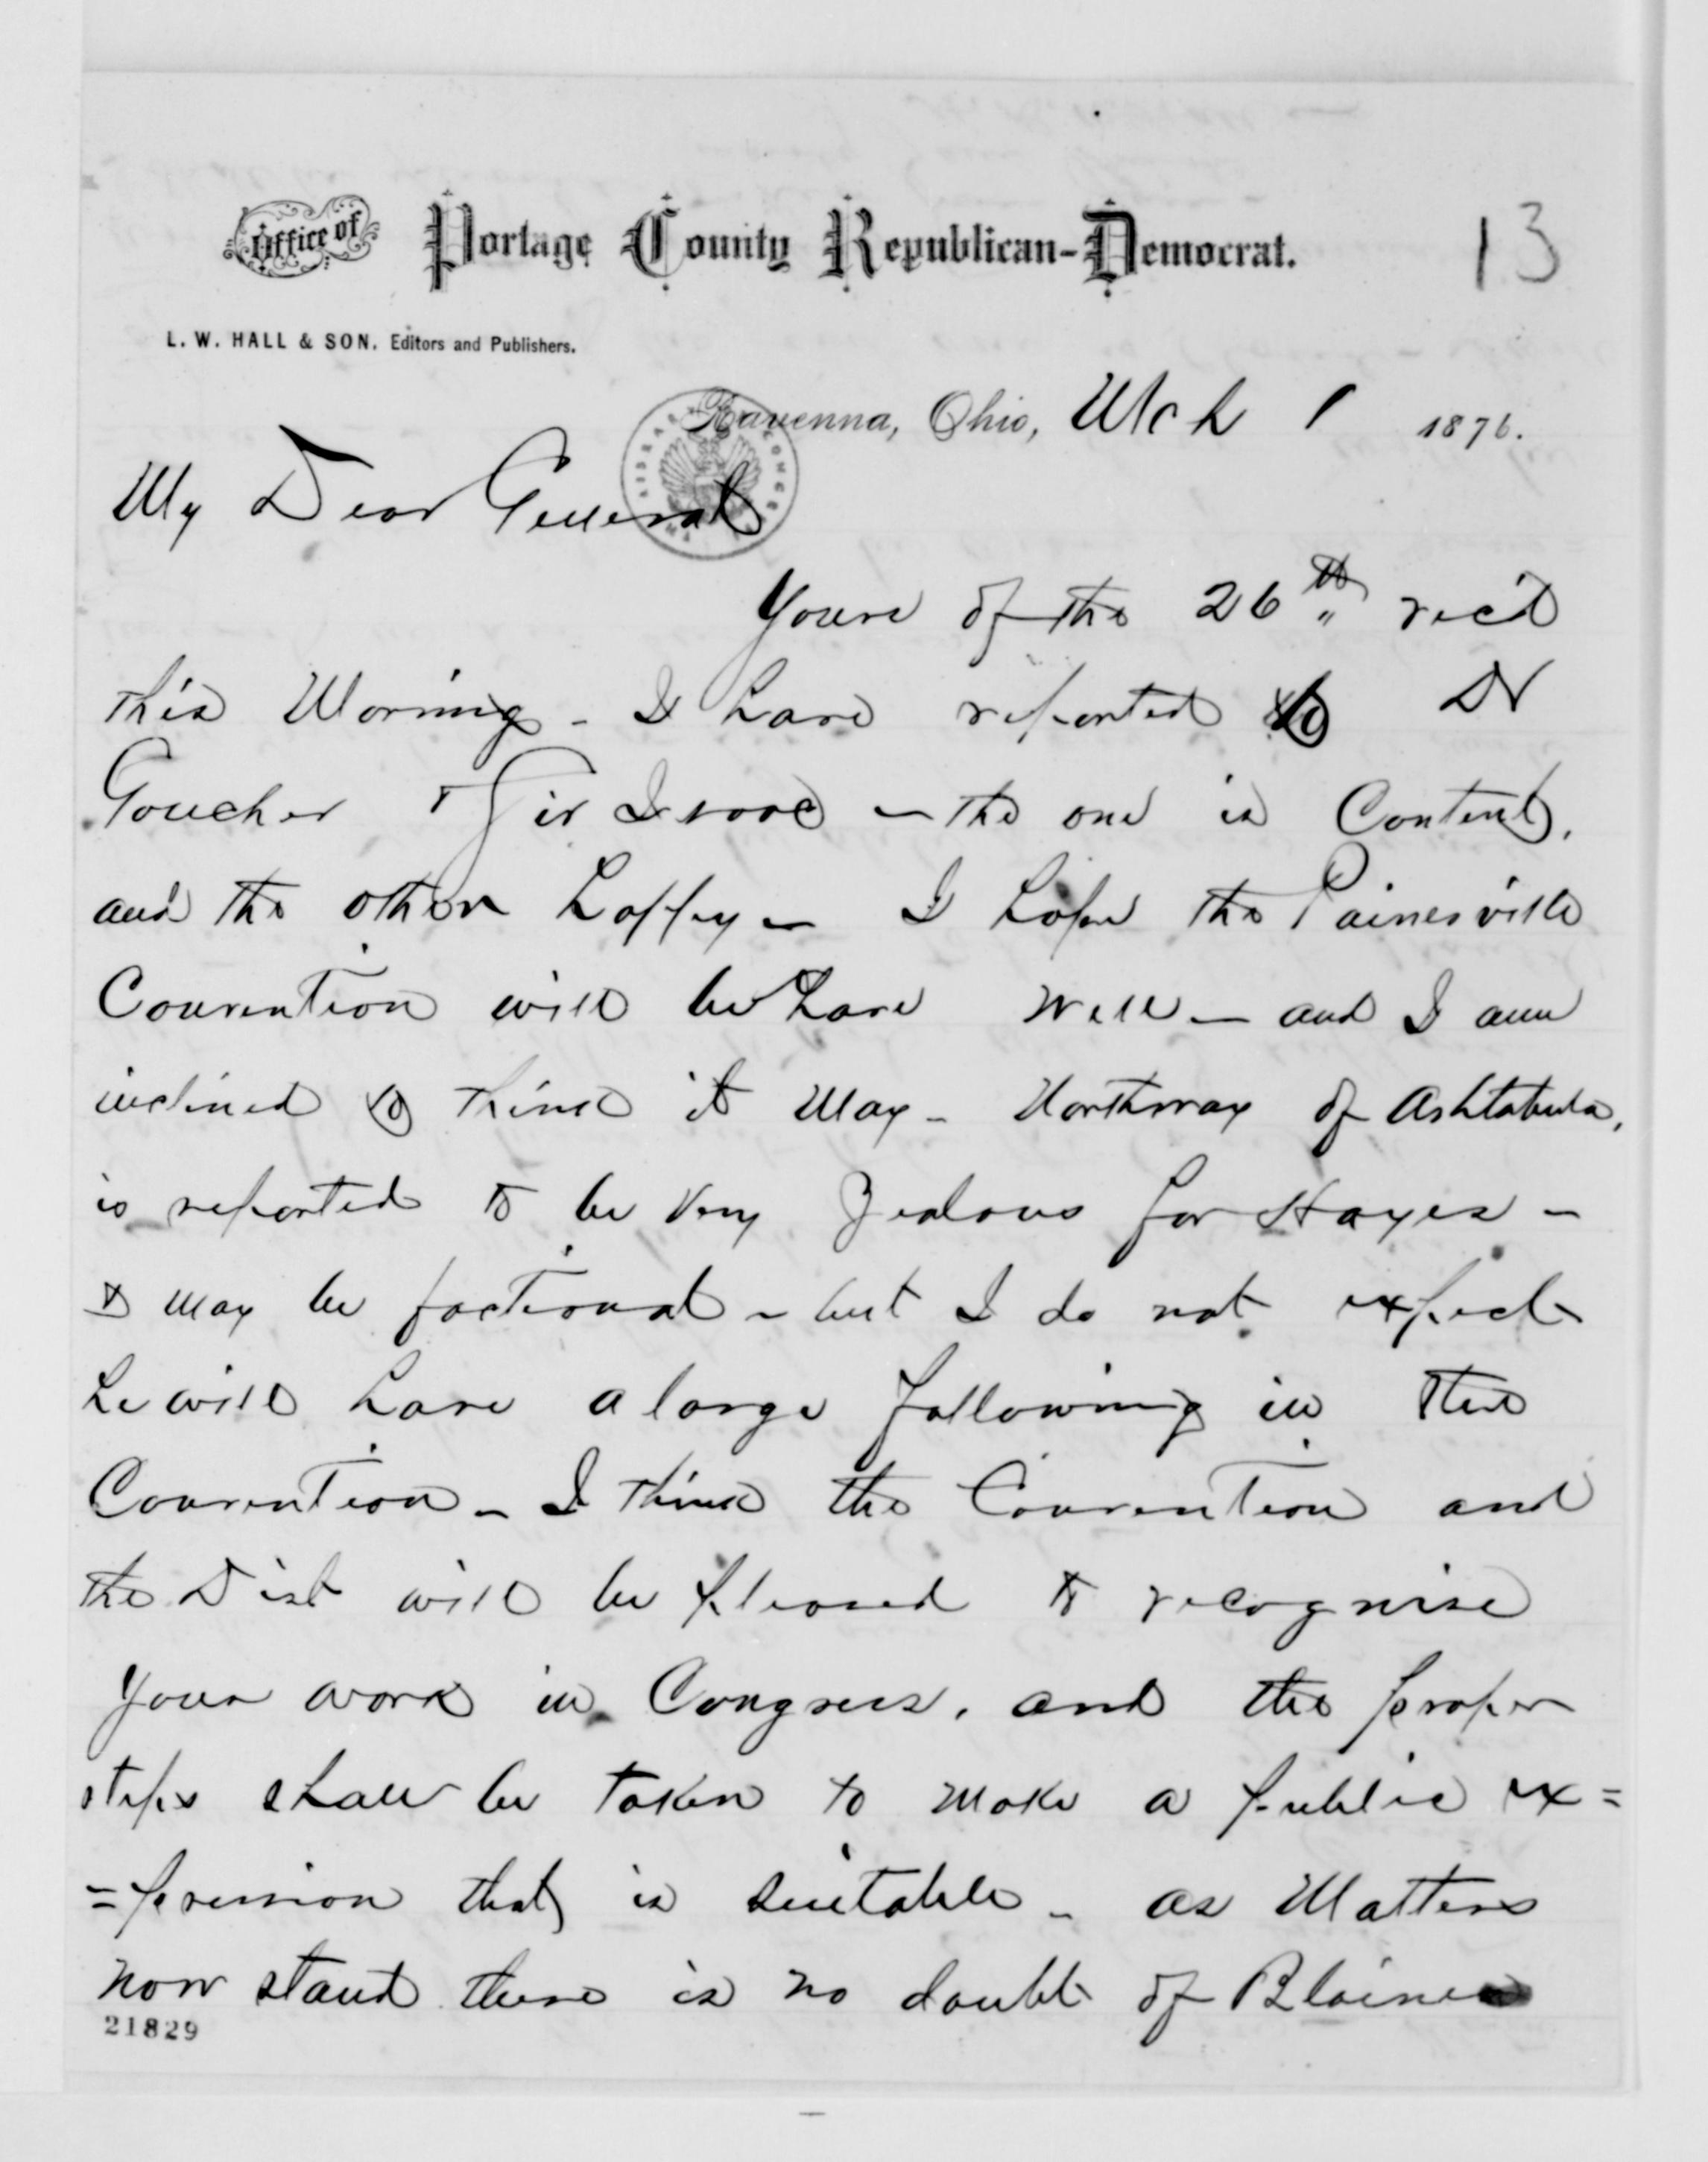 Office of Portage County Republican-Democrat.
13
L. W. HALL & SON. Editors and Publishers.
Ravenna, Ohio, Mch 1 1876.
My Dear General
Yours of the 26th rec'd
this Morning - I have reported to Dr
Goucher & Sir Isaac - the one is Content,
and the other happy - I hope the Painesville
Convention will behave well - and I am
inclined to think it May - Northway of Ashtabula,
is reported to be very Zealous for Hayes -
& may be factional - but I do not expect
he will have a large following in the
Convention - I think the Convention and
the Dist will be pleased to recognise
your work in Congress, and the proper
steps shall be taken to make a public ex=
=pression that is suitable - as Matters
now stand there is no doubt of Blaines
21829